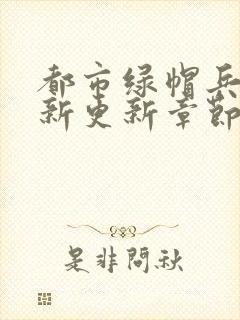 都市绿帽兵
新更新章節
是非問秋